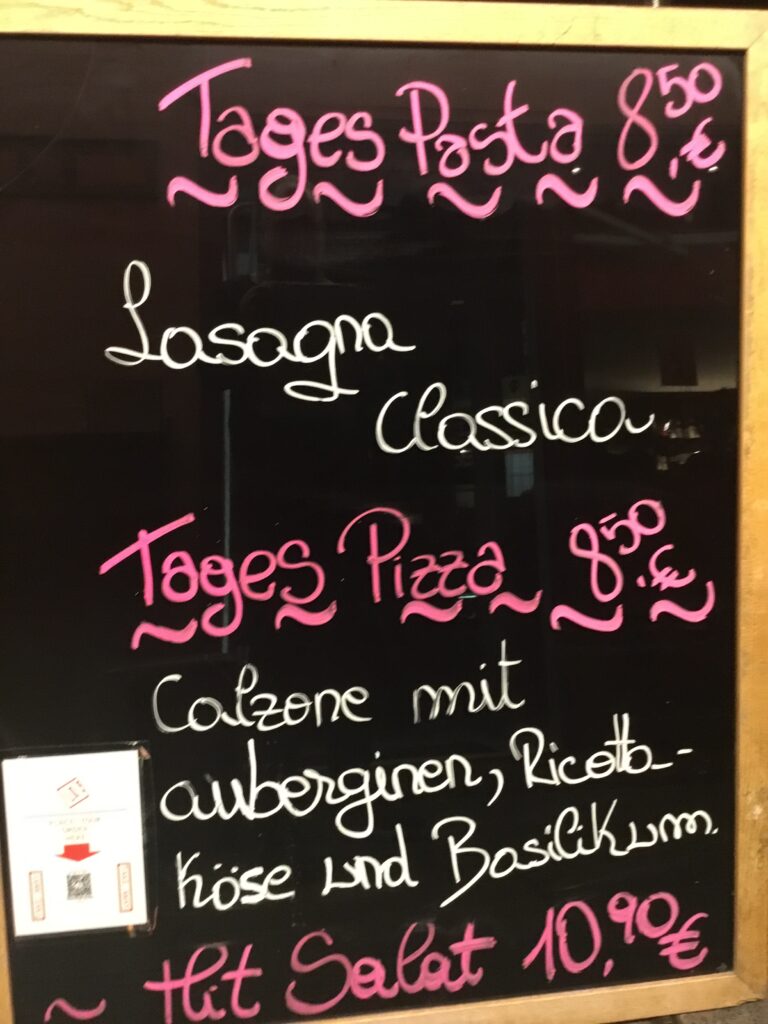 Tages Pasta 8,50 €
Lasagna
Classica
Tages Pizza 8,50 €
Calzone mit
auberginen, Ricotta-
Käse und Basilikum.
~ Hit Salat 10,90 €